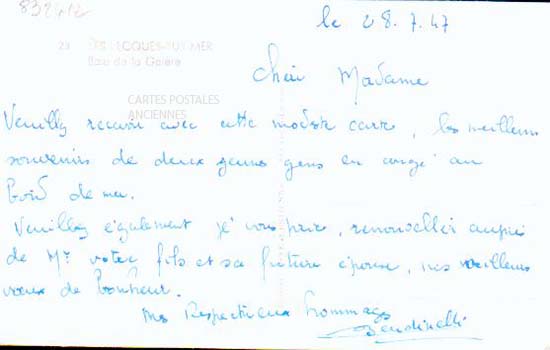 832412
le 28.7.47
23 LES LECQUES-SUR-MER
Baie de la Galère
Chère Madame
CARTES POSTALES
ANCIENNES
Veuillez recevoir avec cette modeste carte, les meilleurs
souvenirs de deux jeunes gens en congé au
bord de mer.
Veuillez également je vous prie, renouveller auprès
de Mr votre fils et sa future épouse, nos meilleurs
vœux de bonheur.
Mes Respectueux hommages